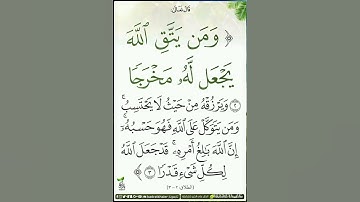 قال تعالى:
﴿ وَمَن يَتَّقِ ٱللَّهَ
يَجْعَل لَّهُۥ مَخْرَجًا
٢ وَيَرْزُقْهُ مِنْ حَيْثُ لَا يَحْتَسِبُ ۚ
وَمَن يَتَوَكَّلْ عَلَى ٱللَّهِ فَهُوَ حَسْبُهُۥٓ ۚ
إِنَّ ٱللَّهَ بَٰلِغُ أَمْرِهِۦ ۚ قَدْ جَعَلَ ٱللَّهُ
لِكُلِّ شَىْءٍ قَدْرًا ٣ ﴾
(الطلاق ٢-٣)